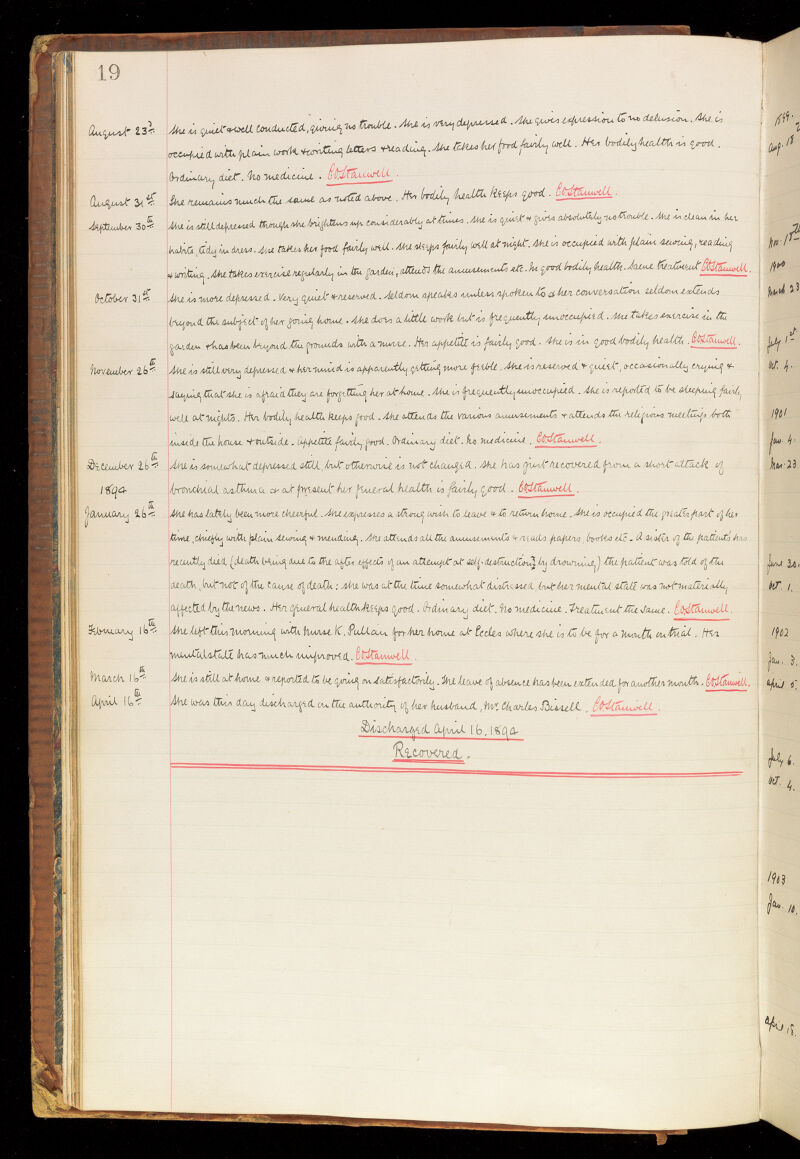 19
August 23rd She is quiet & well conducted, giving no trouble. She is very depressed. She gives expression to no delusion. She is
occupied with plain work & writing letters & reading. She takes her food fairly well. Her bodily health is good.
Ordinary diet. No medicine. C.O. Stanwell.
August 31st She remains much the same as noted above. Her bodily health keeps good. C.O. Stanwell.
September 30th She is still depressed though she brightens up considerably at times. She is quiet & gives absolutely no trouble. She is clean in her
habits, tidy in dress. She takes her food fairly well. She sleeps fairly well at night. She is occupied with plain sewing, reading
& writing. She takes exercise regularly in the garden, attends the amusements etc. In good bodily health. Same treatment C.O. Stanwell.
October 31st She is more depressed. Very quiet & reserved. Seldom speaks unless spoken to & her conversation seldom extends
beyond the subject of her going home. She does a little work but is frequently unoccupied. She takes exercise in the
garden & has been beyond the grounds with a nurse. Her appetite is fairly good. She is in good bodily health. C.O. Stanwell.
November 26th She is still very depressed & her mind is apparently getting more feeble. She is reserved & quiet, occasionally crying &
saying that she is afraid they are forgetting her at home. She is frequently unoccupied. She is reported to be sleeping fairly
well at nights. Her bodily health keeps good. She attends the various amusements & attends the religious meetings both
inside the house & outside. Appetite fairly good. Ordinary diet. No medicine. C.O. Stanwell.
December 26th She is somewhat depressed still, but otherwise is not changed. She has just recovered from a short attack of
1894 bronchial asthma & at present her general health is fairly good. C.O. Stanwell.
January 26th She has lately been more cheerful. She expresses a strong wish to leave & to return home. She is occupied the greater part of her
time, chiefly with plain sewing & mending. She attends all the amusements & reads papers, books etc. A sister of the patient's has
recently died (death being due to the after effects of an attempt at self-destruction by drowning) the patient was told of the
death, but not of the cause of death: she was at the time somewhat distressed but her mental state was not materially
affected by the news. Her general health keeps good. Ordinary diet. No medicine. Treatment the same. C.O. Stanwell.
February 16th She left this morning with Nurse K. Pullan for her home at Eccles where she is to be for a month on trial. Her
mental state has much improved. C.O. Stanwell.
March 16th She is still at home & reported to be going on satisfactorily. The leave of absence has been extended for another month. C.O. Stanwell.
April 16th She was this day discharged on the authority of her husband, Mr. Charles Bissell. C.O. Stanwell.
Discharged April 16. 1894
Recovered.
1899.
Aug. 18
Nov. 15th
1900
March 23
July 1st
Oct. 4.
1901
Jan. 4.
Mar. 23
June 30.
Oct 1.
1902
Jan. 3.
April 5.
July 6.
Oct. 4.
1903
Jan. 10.
April 18.